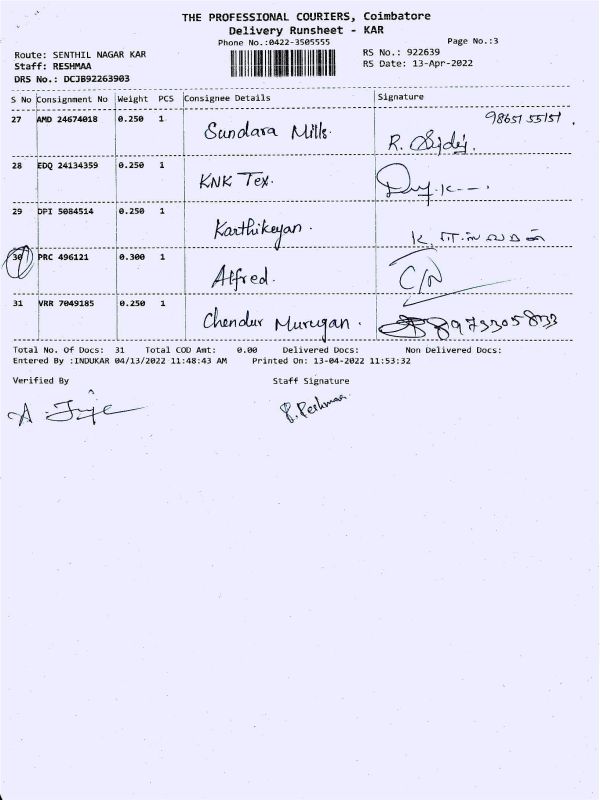 THE PROFESSIONAL COURIERS, Coimbatore
Delivery Runsheet - KAR
Phone No.:0422-3505555
Page No.:3
Route: SENTHIL NAGAR KAR
RS No.: 922639
Staff: RESHMAA
RS Date: 13-Apr-2022
DRS No.: DCJB92263903
S No Consignment No Weight PCS Consignee Details Signature
27 AMD 24674018 0.250 1 Sundara Mills. 98651 55151
R.
28 EDQ 24134359 0.250 1 KNK Tex.
29 DPI 5084514 0.250 1 Karthikeyan.
30 PRC 496121 0.300 1 Alfred. C/N
31 VRR 7049185 0.250 1 Chendur Murugan.
Total No. Of Docs: 31 Total COD Amt: 0.00 Delivered Docs: Non Delivered Docs:
Entered By :INDUKAR 04/13/2022 11:48:43 AM Printed On: 13-04-2022 11:53:32
Verified By Staff Signature